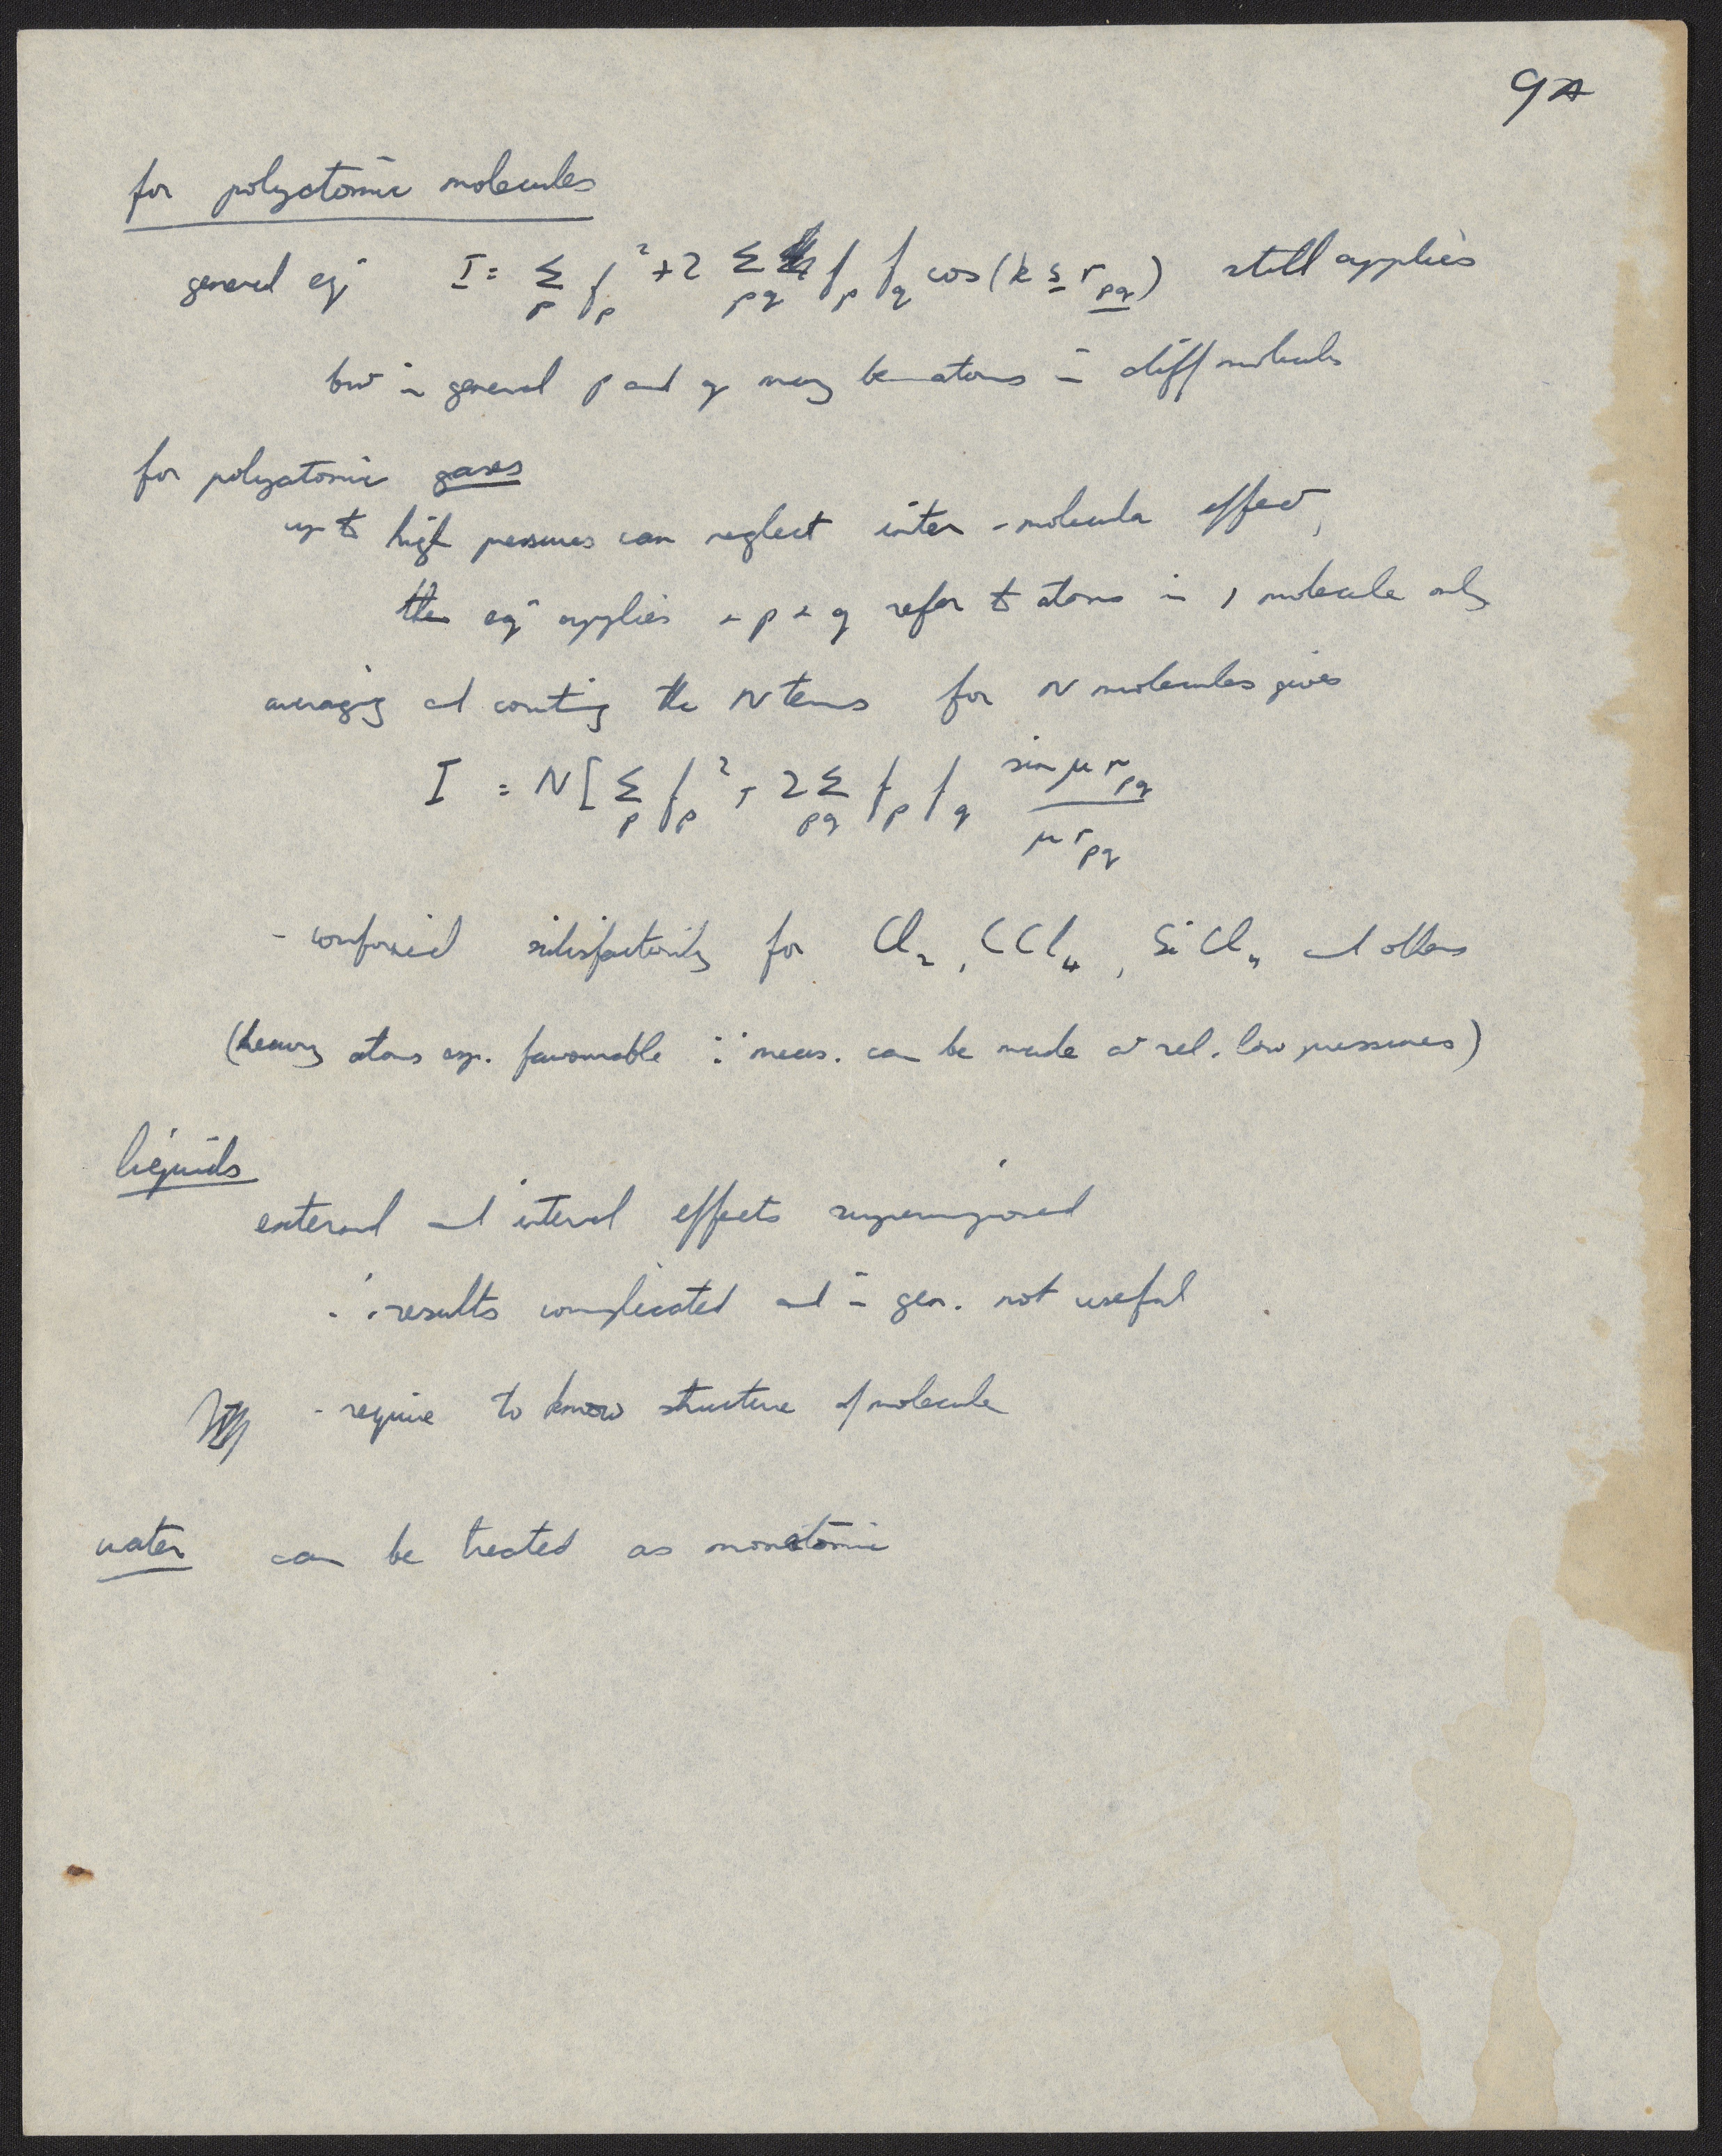 9A
for polyatomic molecules
general eqn I = Σp fp² + 2 Σpq fp fq cos(k s rpq) still applies
but in general p and q may be atoms in diff molecules
for polyatomic gases
up to high pressures can neglect inter-molecular effect,
then eqn applies + p + q refer to atoms in 1 molecule only
averaging and counting the N terms for N molecules gives
I = N[Σp fp² + 2Σpq fp fq sin μ rpq / μ rpq
- confirmed satisfactorily for Cl2, CCl4, SiCl4 and others
(heavy atoms esp. favourable ∵ meas. can be made at rel. low pressures)
liquids
external and internal effects superimposed
∴ results complicated and in gen. not useful
- require to know structure of molecule
water can be treated as monatomic